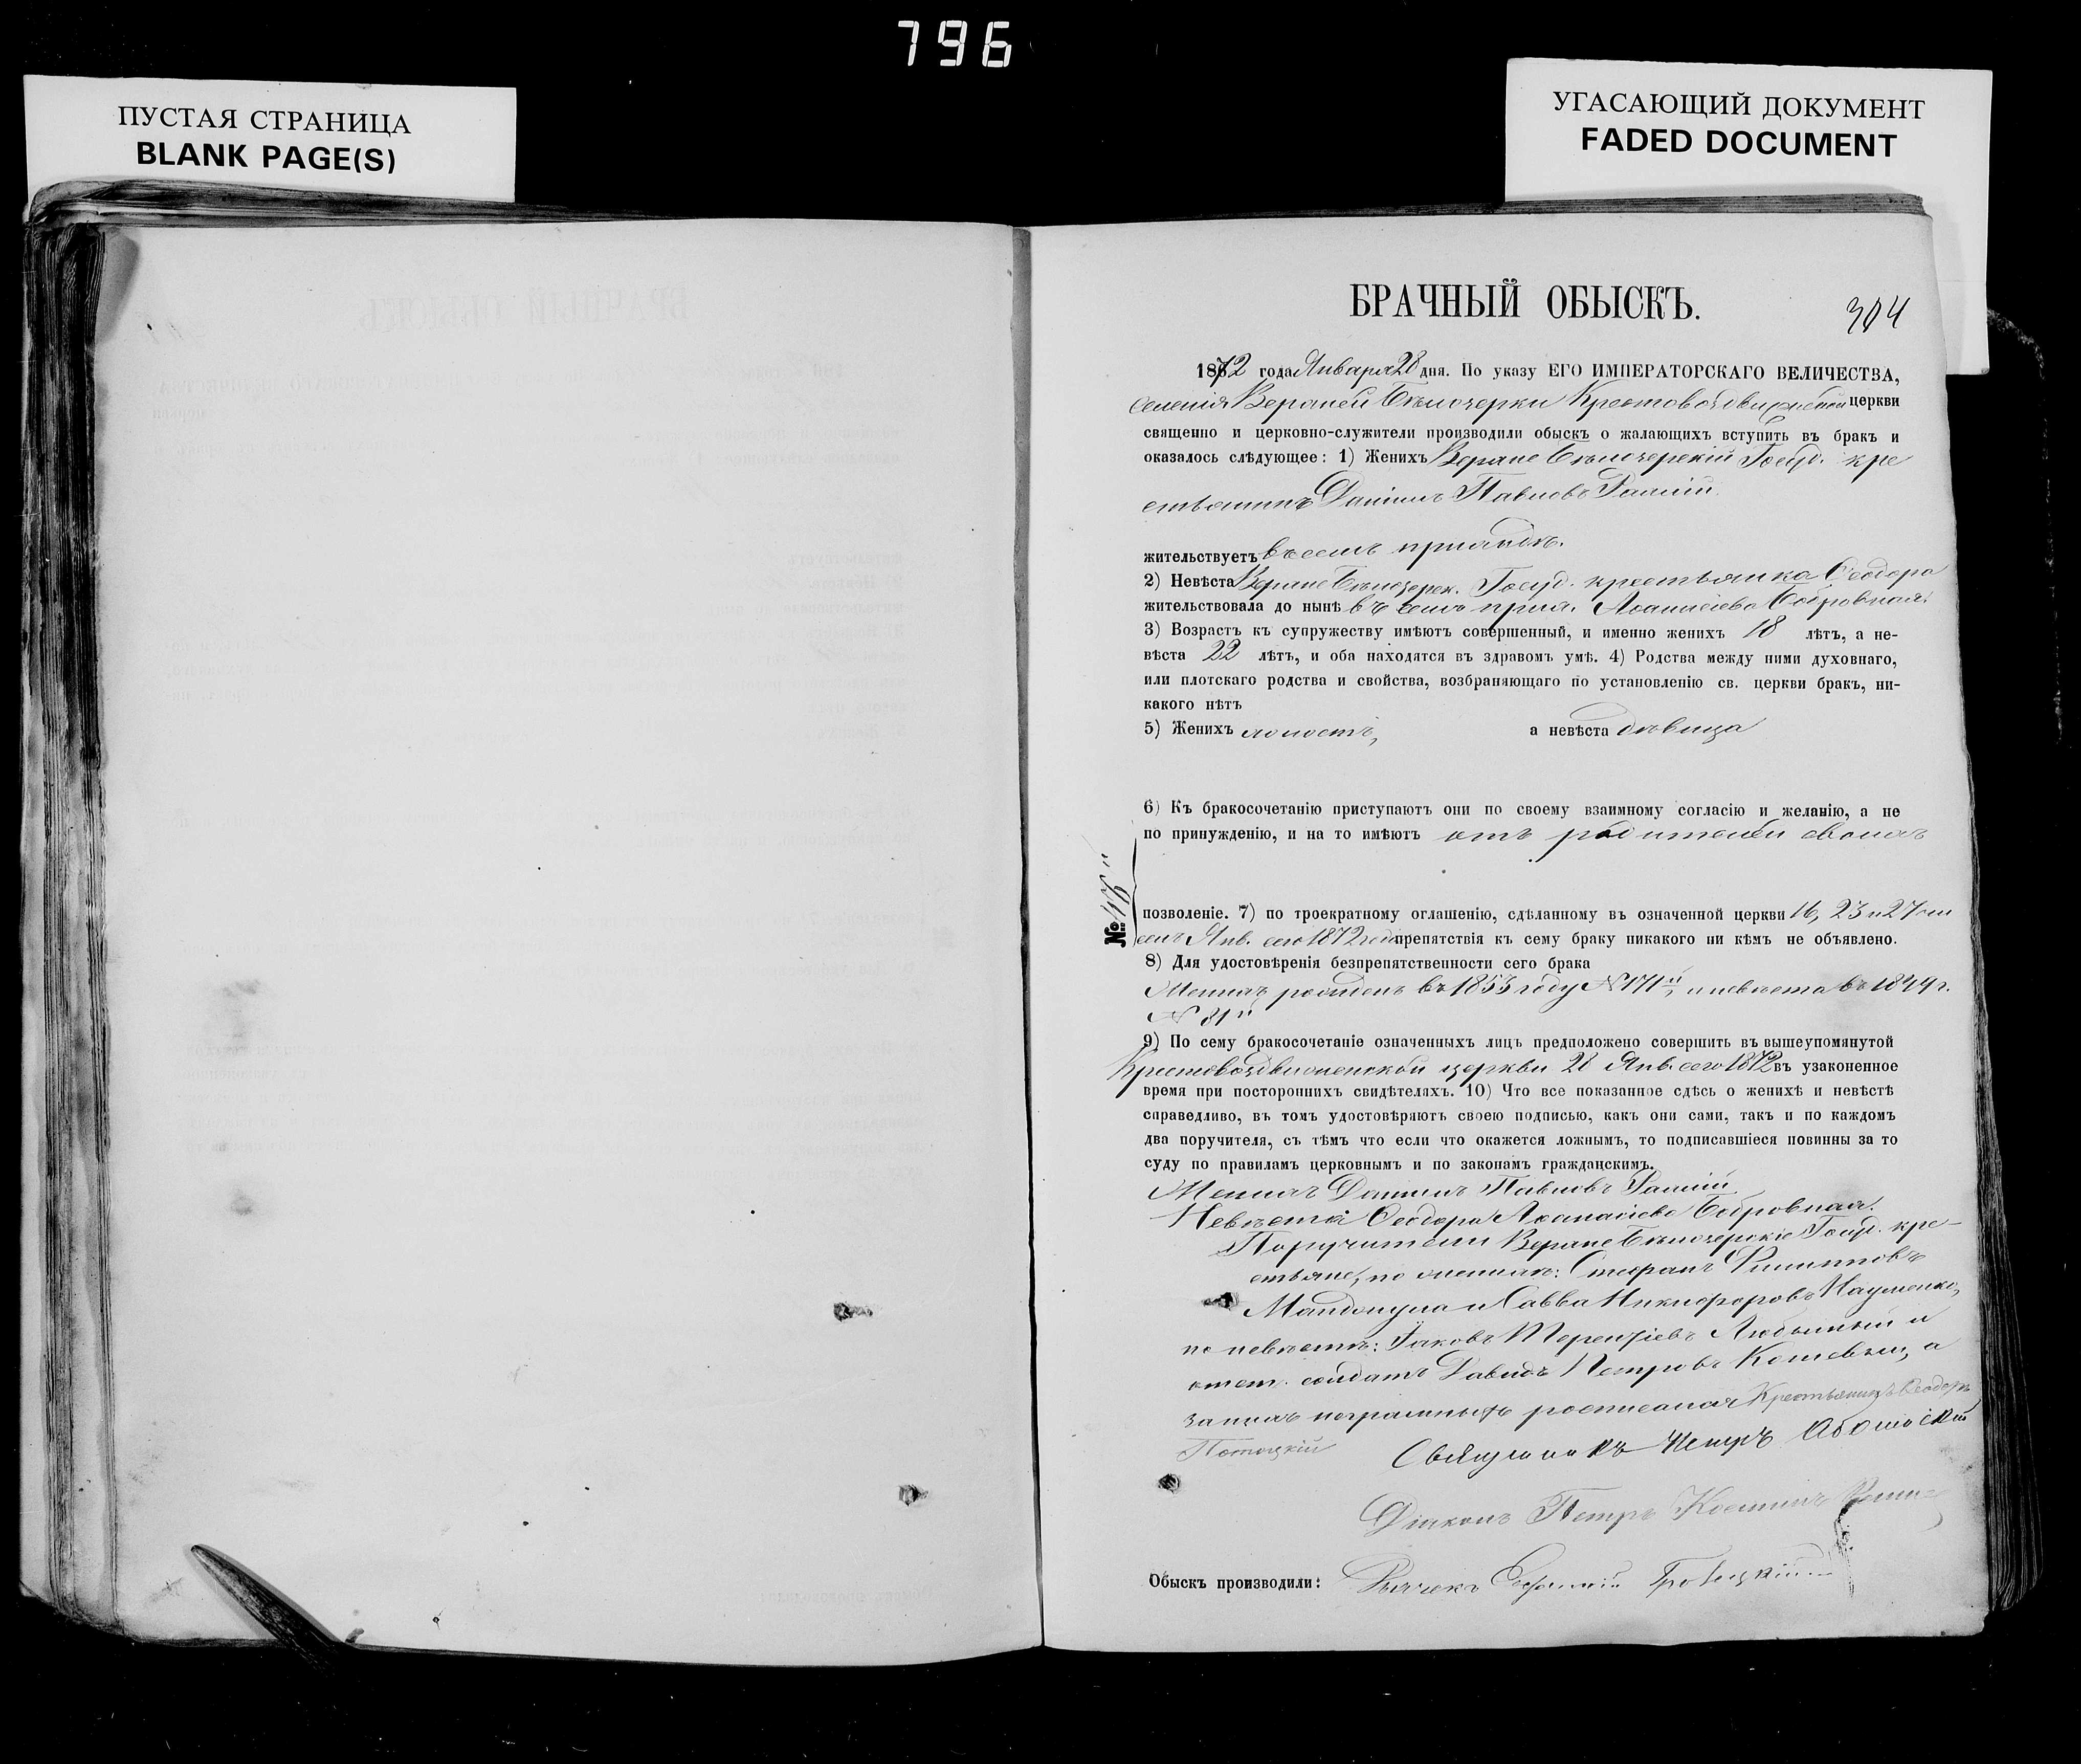 796
ПУСТАЯ СТРАНИЦА
BLANK PAGE(S)
УГАСАЮЩИЙ ДОКУМЕНТ
FADED DOCUMENT
БРАЧНЫЙ ОБЫСКЪ.
304
1872 года Января 28 дня. По указу ЕГО ИМПЕРАТОРСКАГО ВЕЛИЧЕСТВА,
селенія Верхней Бѣлозерки Крестовоздвиженской церкви
священно и церковно-служители производили обыскъ о жалающихъ вступить въ бракъ и
оказалось слѣдующее: 1) Женихъ Верхне Бѣлозерскій Госуд. кре
стьянинъ Даніилъ Павловъ
жительствуетъ въ семъ приходѣ.
2) Невѣста Верхне Бѣлозерск. Госуд. крестьянка Ѳеодора
жительствовала до нынѣ въ семъ прих. Аѳанасіева Бобровная.
3) Возрастъ къ супружеству имѣютъ совершенный, и именно женихъ 18 лѣтъ, а не-
вѣста 22 лѣтъ, и оба находятся въ здравомъ умѣ. 4) Родства между ними духовнаго,
или плотскаго родства и свойства, возбраняющаго по установленію св. церкви бракъ, ни-
какого нѣтъ
5) Женихъ холостъ, а невѣста дѣвица
6) Къ бракосочетанію приступаютъ они по своему взаимному согласію и желанію, а не
по принужденію, и на то имѣютъ отъ родителей своихъ
№
позволеніе. 7) по троекратному оглашенію, сдѣланному въ означенной церкви 16, 23 и 27
Янв. сего 1872 года препятствія къ сему браку никакого ни кѣмъ не объявлено.
8) Для удостовѣренія безпрепятственности сего брака
Женихъ рожденъ въ 1853 году № 171й, и невѣста въ 1849 г.
№ 81й
9) По сему бракосочетаніе означенныхъ лицъ предположено совершить въ вышеупомянутой
Крестовоздвиженской церкви 28 Янв. сего 1872 въ узаконенное
время при постороннихъ свидѣтеляхъ. 10) Что все показанное сдѣсь о женихѣ и невѣстѣ
справедливо, въ томъ удостовѣряютъ своею подписью, какъ они сами, такъ и по каждомъ
два поручителя, съ тѣмъ что если что окажется ложнымъ, то подписавшіеся повинны за то
суду по правиламъ церковнымъ и по законамъ гражданскимъ.
Женихъ Даніилъ Павловъ
Невѣста Ѳеодора Аѳанасіева Бобровная.
Поручители Верхне Бѣлозерскіе Госуд. кре-
стьяне, по женихѣ: Стефанъ Филипповъ
и Савва Никифоровъ Науменко,
по невѣстѣ: Іаковъ Терентіевъ и
отст. солдатъ Давидъ Петровъ а
за нихъ неграмотныхъ росписался Крестьянинъ Ѳеодоръ
Потоцкій
Священникъ Петръ
Діаконъ Петръ Косминъ
Обыскъ производили: